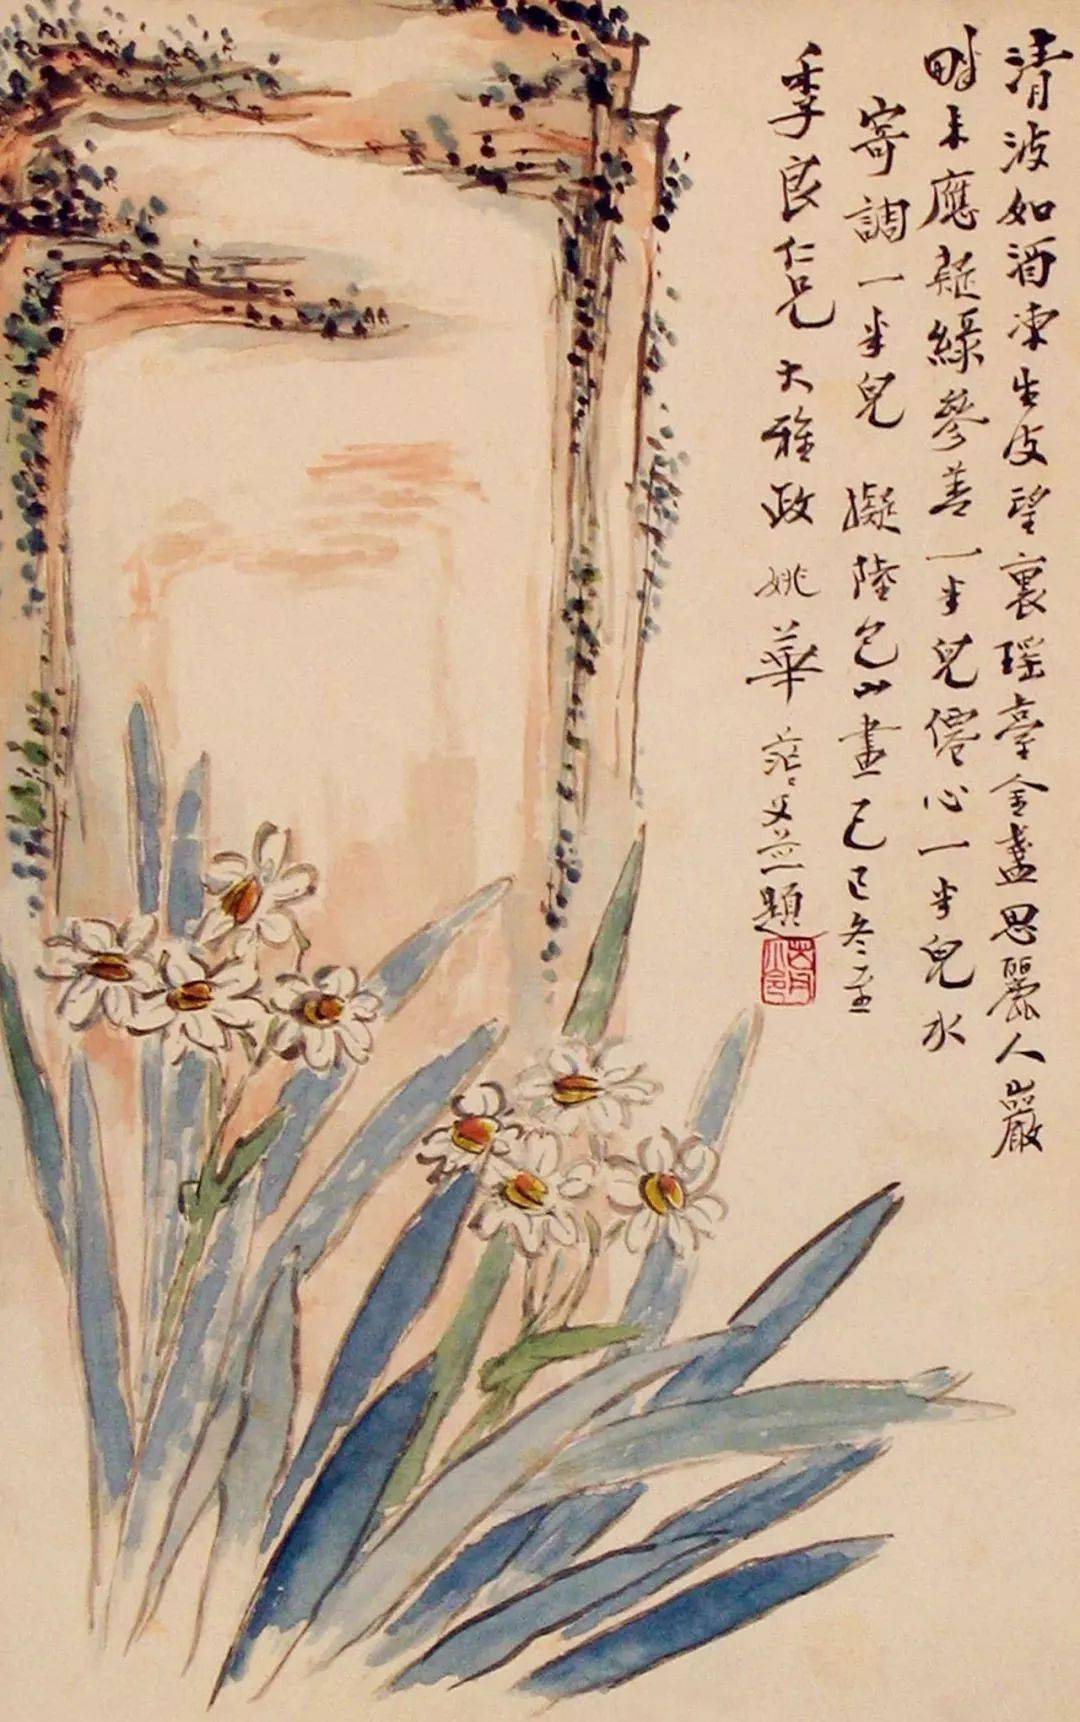 清波如酒凍生皮望裏瑶臺金盞思麗人巖
畔未應疑綠參差一半兒僊心一半兒水
寄調一半兒 擬陸包山畫己巳冬至
季良仁兄大雅政姚華茫父並題